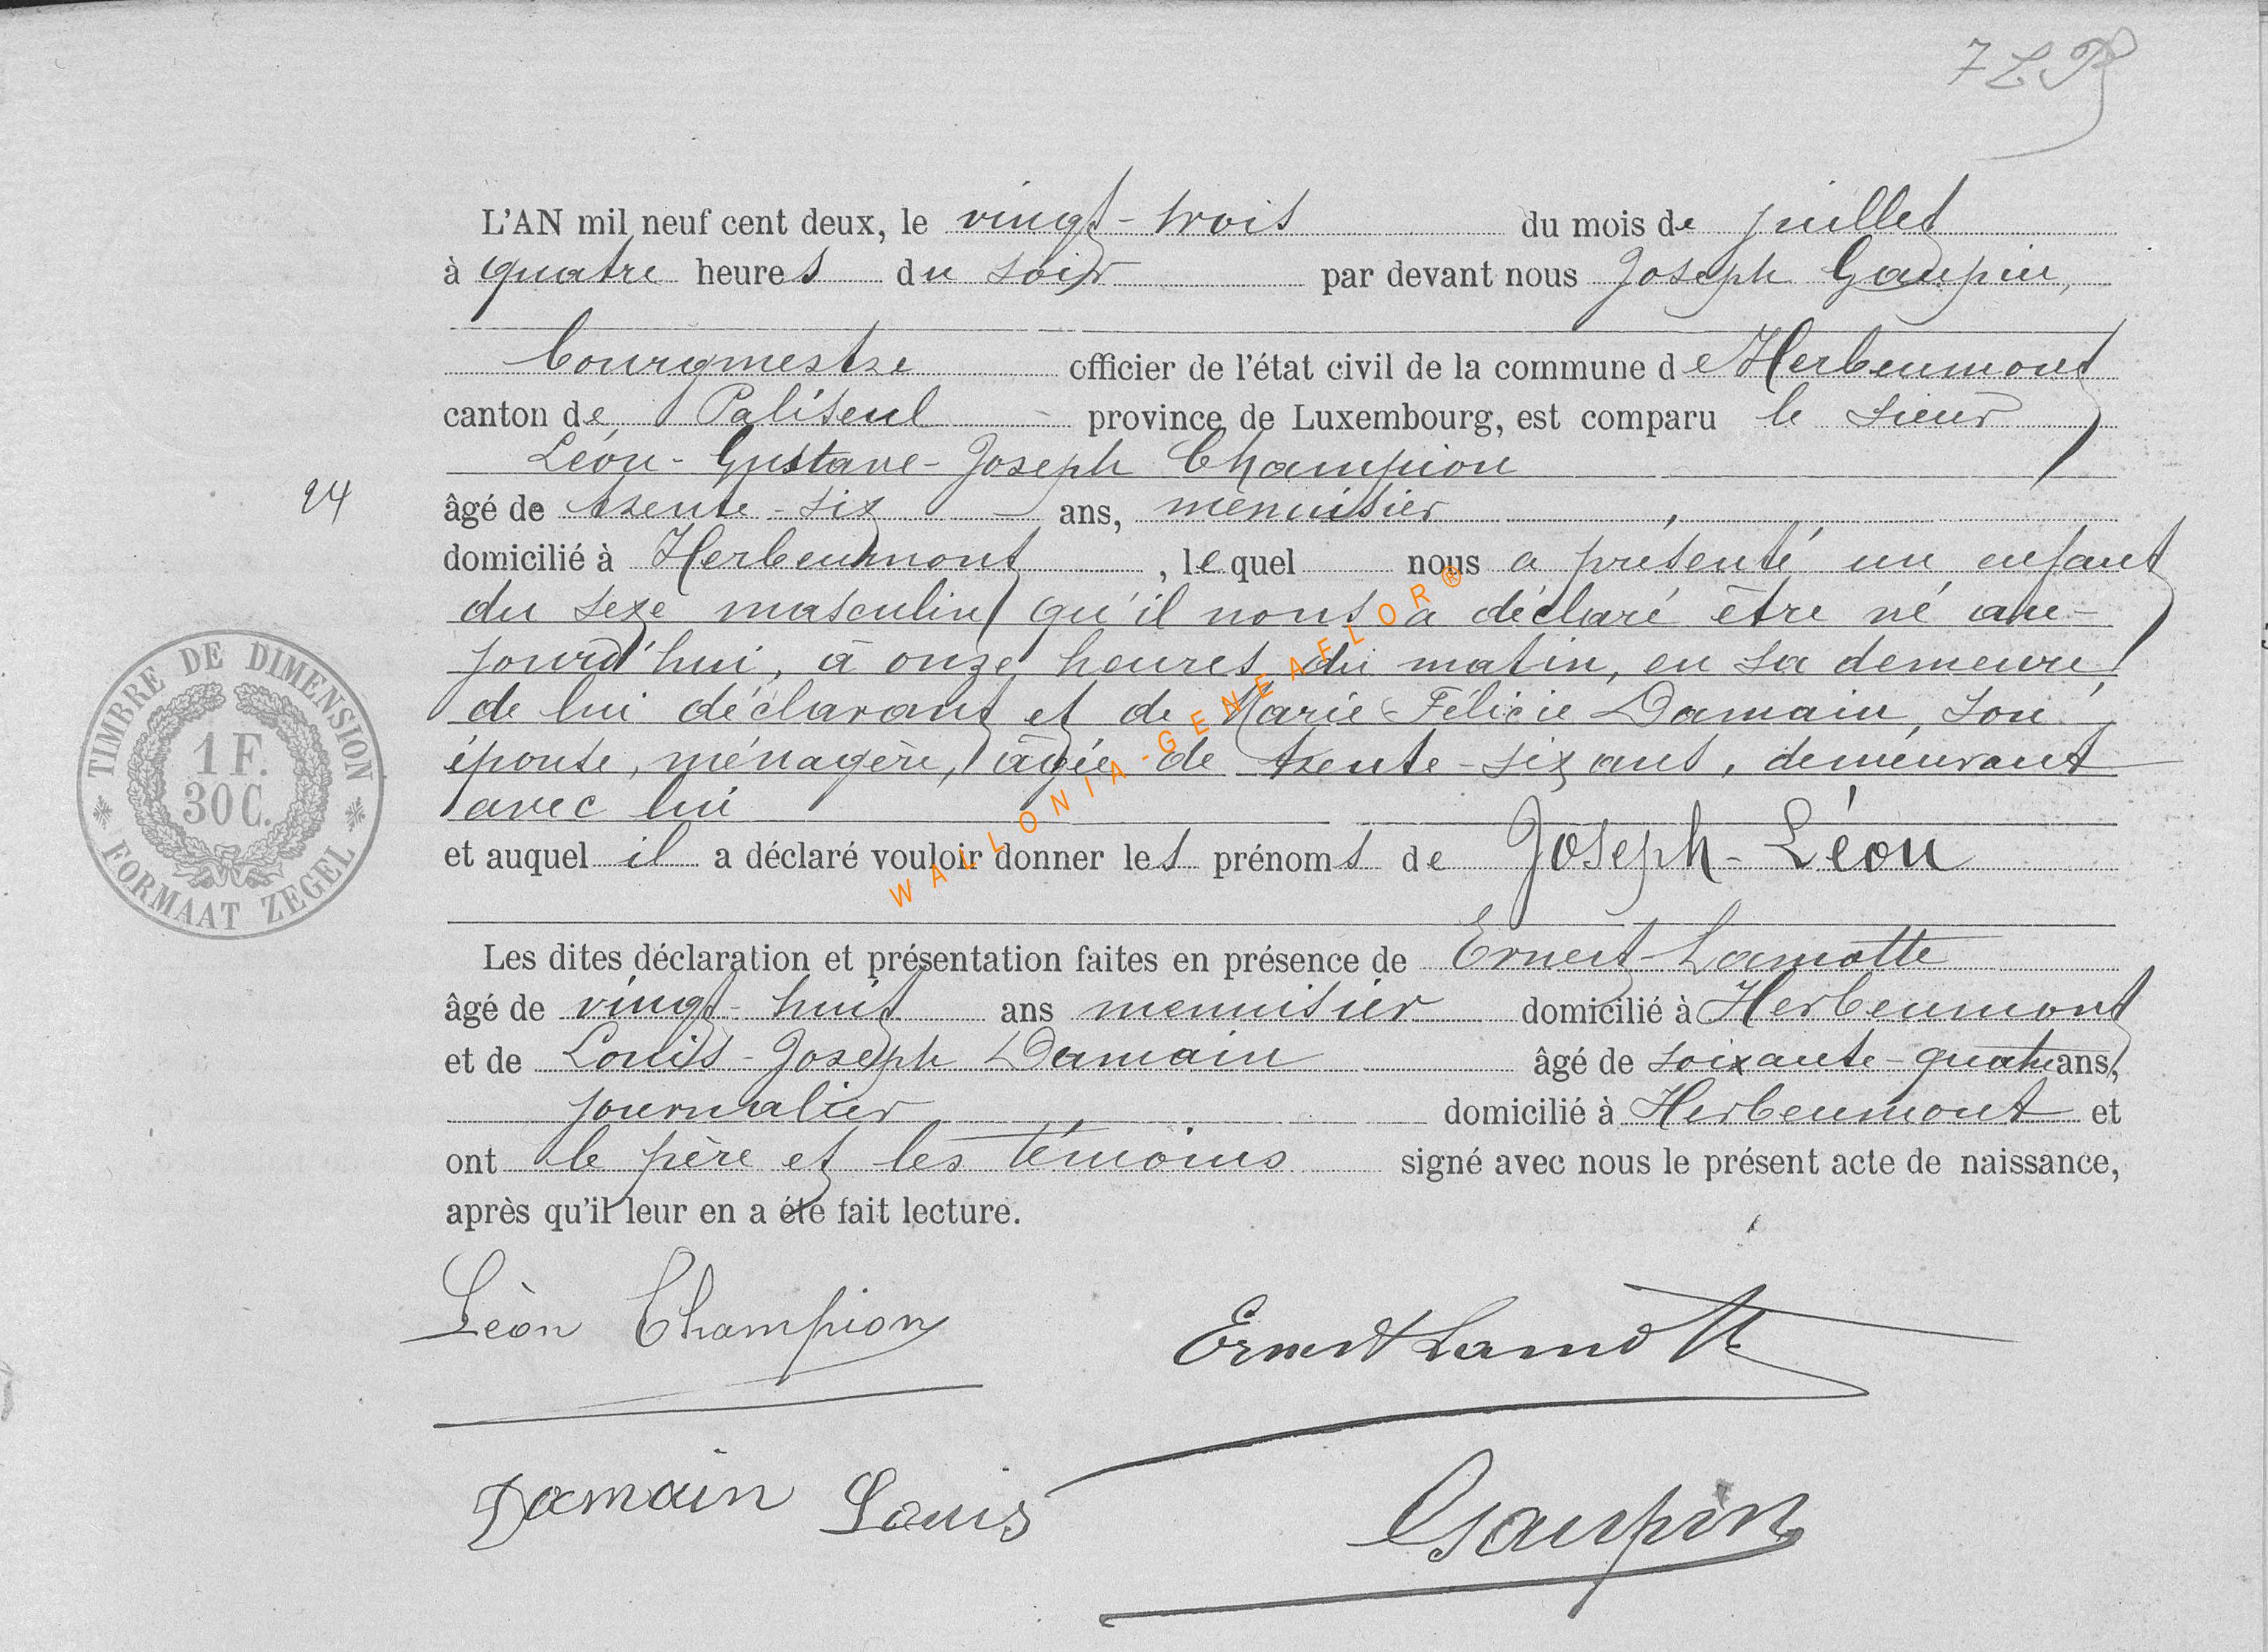 7
L'AN mil neuf cent deux, le vingt-trois du mois de juillet
à quatre heures du soir par devant nous Joseph Gaupin,
bourgmestre officier de l'état civil de la commune de Herbeumont
canton de Paliseul province de Luxembourg, est comparu le sieur
Léon-Gustave-Joseph Champion
24
âgé de trente-six ans, menuisier,
domicilié à Herbeumont, lequel nous a présenté un enfant
du sexe masculin qu'il nous a déclaré être né au-
jourd'hui, à onze heures du matin, en sa demeure,
de lui déclarant et de Marie-Félicie Damain, son
épouse, ménagère, âgée de trente-six ans, demeurant
avec lui
et auquel il a déclaré vouloir donner les prénoms de Joseph-Léon
Les dites déclaration et présentation faites en présence de Ernest Lamotte
âgé de vingt-huit ans menuisier domicilié à Herbeumont
et de Louis-Joseph Damain âgé de soixante-quatre ans,
journalier domicilié à Herbeumont et
ont le père et les témoins signé avec nous le présent acte de naissance,
après qu'il leur en a été fait lecture.
Léon Champion
Ernest Lamotte
Damain Louis
Gaupin
TIMBRE DE DIMENSION
1 F.
30 C.
FORMAAT ZEGEL
WALLONIA-GENEAFLOR®